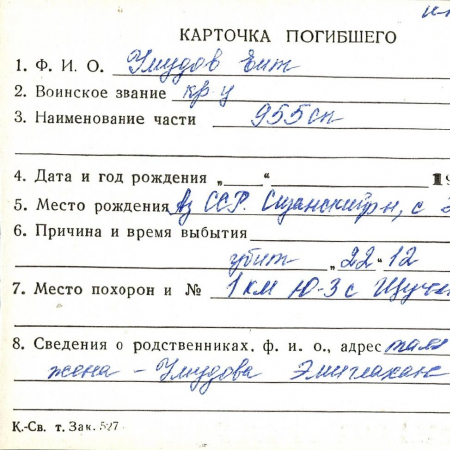 КАРТОЧКА ПОГИБШЕГО
1. Ф. И. О. Умудов
2. Воинское звание кр-ц
3. Наименование части 955 сп
4. Дата и год рождения „ “ 19
5. Место рождения Аз ССР. р-н, с
6. Причина и время выбытия
убит „22“ 12
7. Место похорон и № 1 км Ю-З с
8. Сведения о родственниках, ф. и. о., адрес там
жена - Умудова
К.-Св. т. Зак. 527